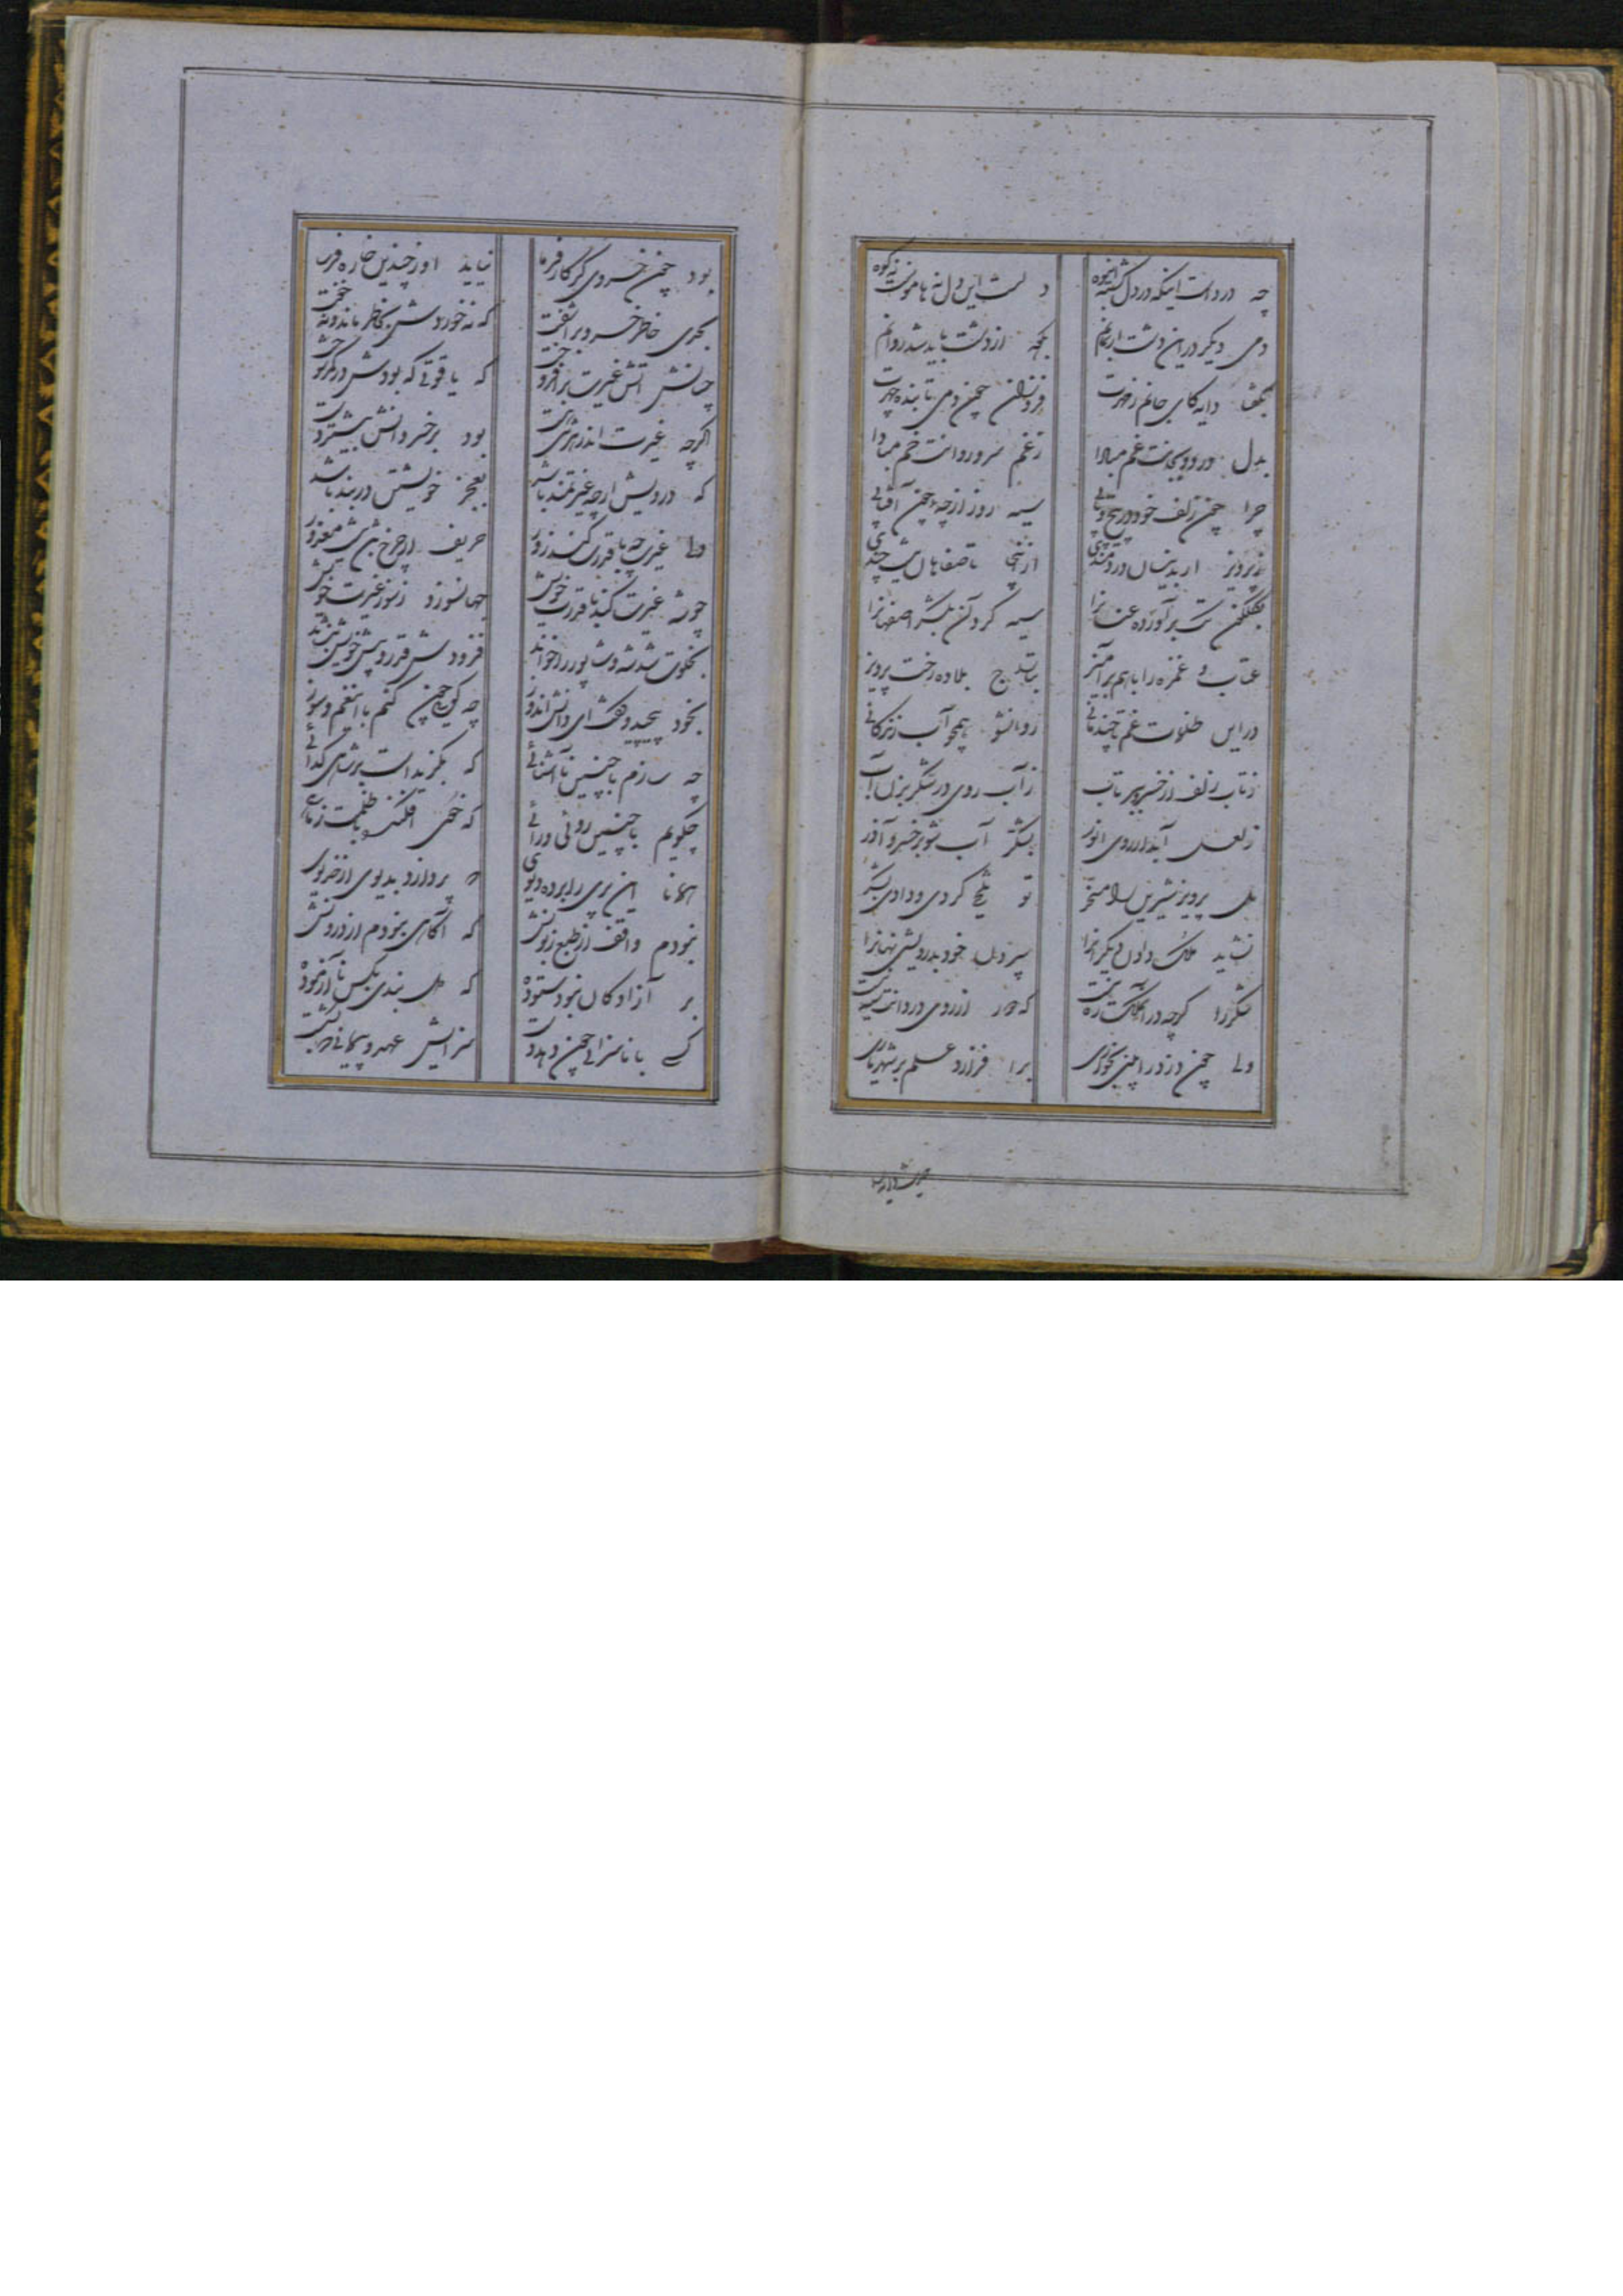 چه درد است اینکه در دل گشته انبوه دلست این دل نه هامونست نه کوه
دمی دیگر در این دشت ار بمانم بکه از دشت باید شد روانم
بگفتا دایه کای جانم ز مهرت فروزان چون دمی تابنده چهرت
بدل درد و بجانت غم مبادا ز غم سرو روانت خم مبادا
چرا چون زلف خود در پیچ و تابی سیه روز از چه چون آفتابی
ز پرویز ار بدینسان دردمندی از اینجا تا صفاهان نیست چندی
سیه گردان بشکر اصفهانرا
عتاب و غمزه را با هم برآمیز بتاراج بلا ده رخت پرویز
در این ظلمات غم تا چند مانی روانشو همچو آب زندگانی
ز تاب زلف از خسرو ببر تاب ز آب روی در شکر بزن آب
ز لعل آبدار و روی انور بشکر آب شو بر خسرو آذر
بلی پرویز شیرین را تو تلخ کردی و دادی بشکر
نشاید ملک دادن دیگرانرا پس از دل خود بدرویشی نهانرا
شکر را گرچه در آن ملک ره نیست که از روی درد
ولی چون دزد را بینی برافرازد علم بر شهریاری
بود چون خسروی گر کارفرما نیاید اورا چندین خاره فرسا
بحری خاطر خسرو برآشفت که نه خوردش بخاطر ماند و نه خفت
چنانش آتش غیرت برافروخت که یاقوتی که بودش در کمر سوخت
اگرچه غیرت اندر هر تنی هست بود بر خسروانش بیشتر دست
که درویش ارچه غیرتمند باشد بعجز خویشتن در بند باشد
ولی غیرت چو با قدرت کند زور حریف ار چرخ باشد نیست معذور
چو شه غیرت کند با قدرت خویش جهانسوزد ز سوز غیرت خویش
بخلوت شد شه و شاپور را خواند فزودش قدر و پیش خویش بنشاند
بخود پیچید و گفت ای دانش اندوز چه گویی چون کنم با این غم و سوز
چه سازم با چنین ناآشنائی که بگزیده است بر شاهی گدائی
چگویم با چنین روئی و رائی که ختم افکند با ظلمت
همانا این پری را برده دیوی پردازد بدیوی از
نبودم واقف از طبع زبونش که آگاهی نبودم از درونش
بر آزادگان نبود ستوده که دل بندی بکس ناآزموده
کسی با ناسزائی چون دهد دست سزایش عهد و پیمانی